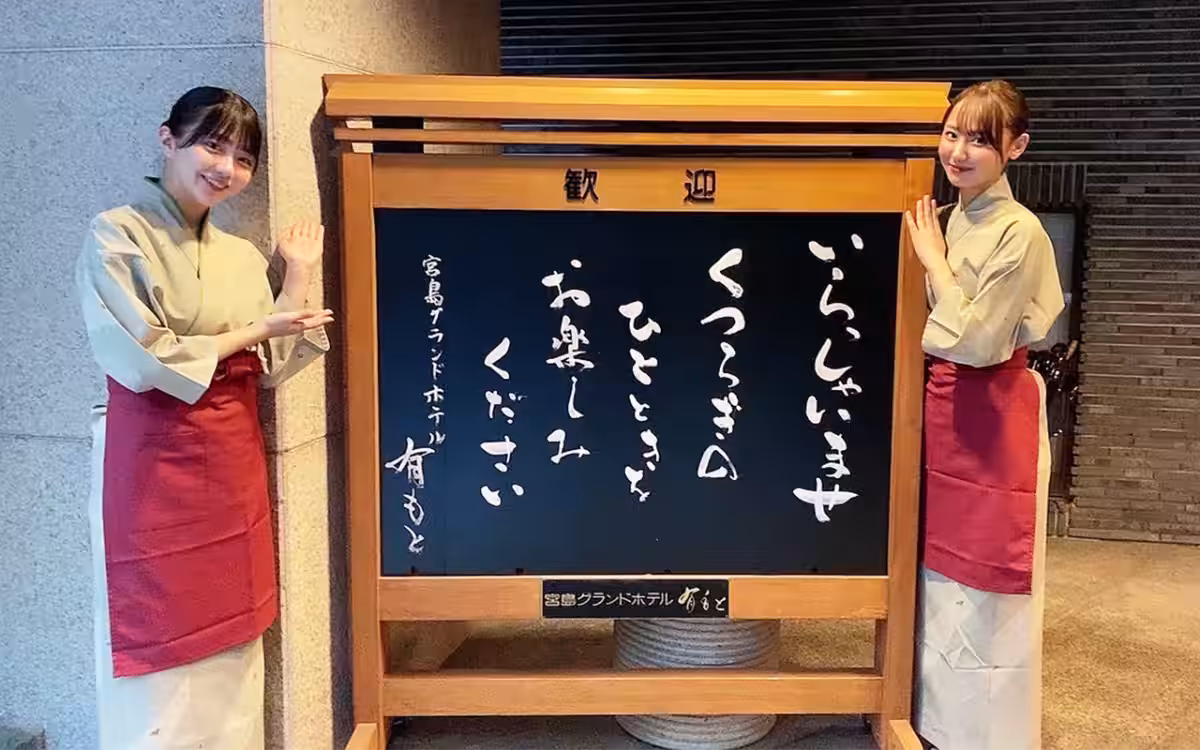 歓迎
いらっしゃいませ
くつろぎの
ひとときを
お楽しみ
ください
宮島グランドホテル
有もと
宮島グランドホテル 有もと